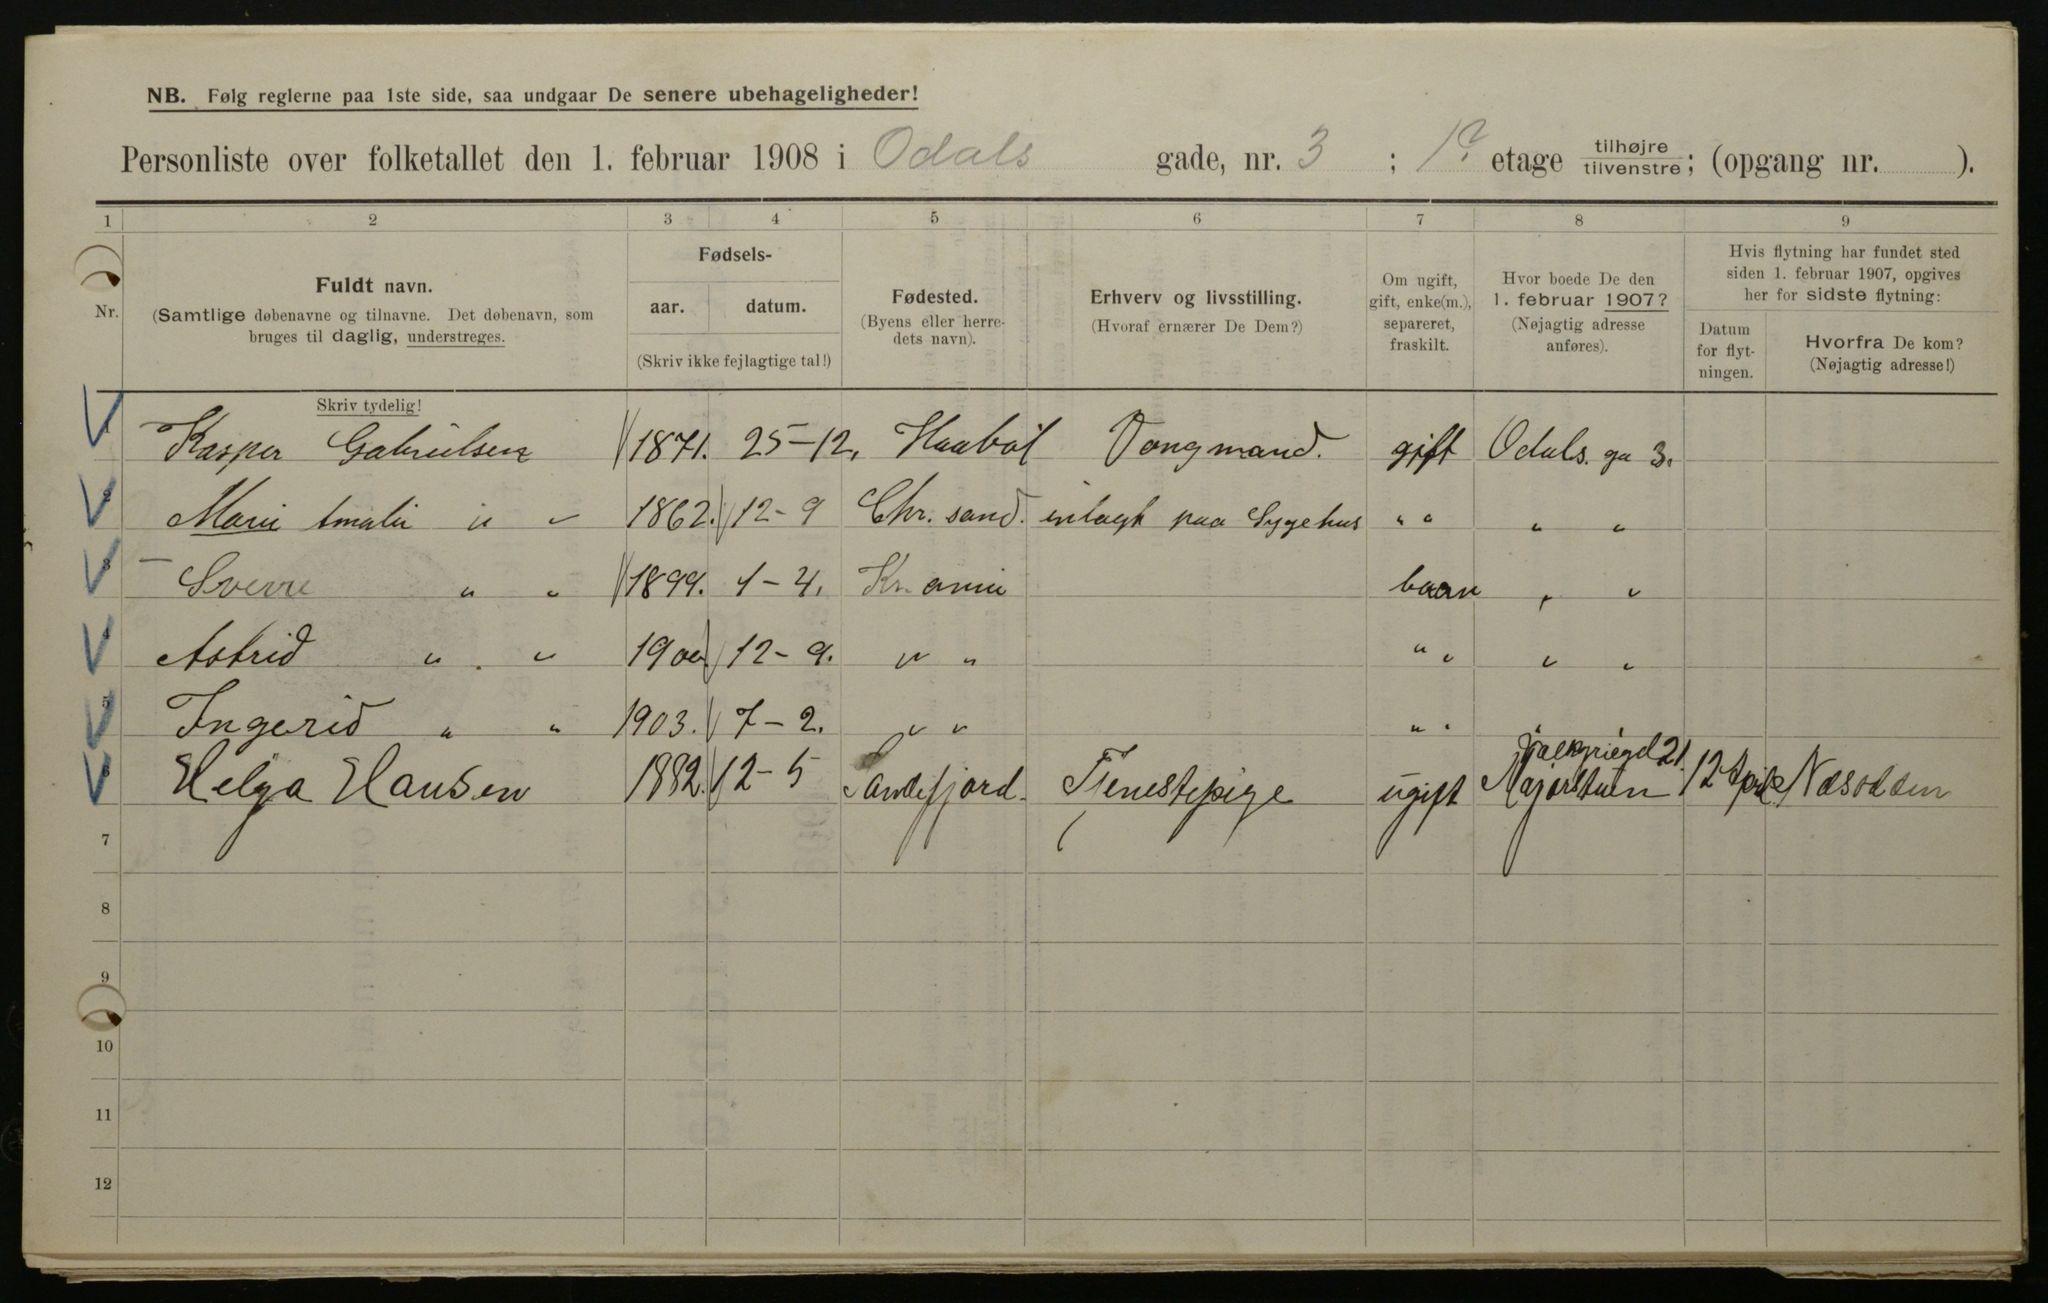 NB. Følg reglerne paa 1ste side, saa undgaar De senere ubehageligheder!
Personliste over folketallet den 1. februar 1908 i Odals gade, nr. 3 ; 1ª etage tilhøjre/tilvenstre; (opgang nr. ).
1 2 3 4 5 6 7 8 9
Nr.
Fuldt navn.
(Samtlige døbenavne og tilnavne. Det døbenavn, som
bruges til daglig, understreges.
Skriv tydelig!
Fødsels-
aar. datum.
(Skriv ikke fejlagtige tal!)
Fødested.
(Byens eller herre-
dets navn).
Erhverv og livsstilling.
(Hvoraf ernærer De Dem?)
Om ugift,
gift, enke(m.),
separeret,
fraskilt.
Hvor boede De den
1. februar 1907?
(Nøjagtig adresse
anføres).
Hvis flytning har fundet sted
siden 1. februar 1907, opgives
her for sidste flytning:
Datum
for flyt-
ningen.
Hvorfra De kom?
(Nøjagtig adresse!)
1 Kasper Gabrielsen 1871. 25-12. Haabøl Vongmand. gift Odals. ga 3.
2 Marie Amalie " " 1862. 12-9 Chr. sand. inlagt paa Sygehus " " " "
3 Sverre " " 1899. 1-4. Kr. ania barn " "
4 Astrid " " 1900 12-9. " " " " " "
5 Ingerid " " 1903. 7-2. " " " "
6 Helga Hansen 1882. 12-5 Sandefjord. Tjenestepige ugift Majorstuen 21. 12 April Næsodden
7
8
9
10
11
12